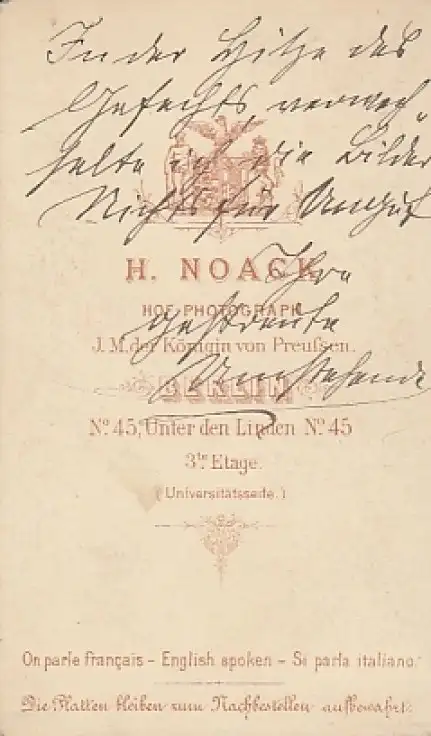 In der Hitze des
Gefechts verwech-
selte ich die Bilder
Nichts für Ungut
Ihre
zerstreute
Umstehende
H. NOACK
HOF-PHOTOGRAPH
I. M. der Königin von Preußen.
BERLIN
No. 45, Unter den Linden No. 45
3te. Etage.
(Universitätsseite.)
On parle français - English spoken - Si parla italiano.
Die Platten bleiben zum Nachbestellen aufbewahrt.